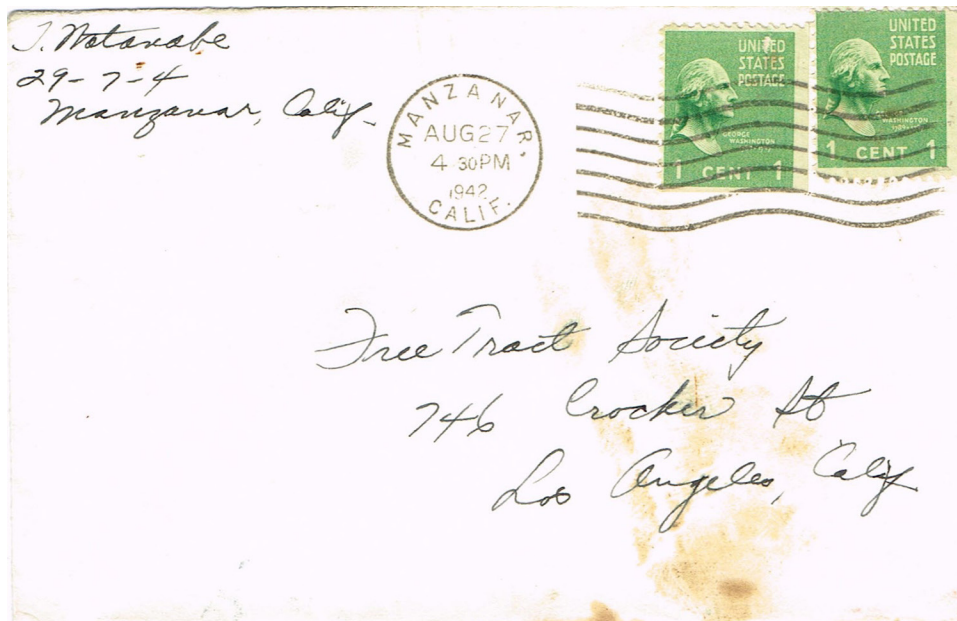 T. Watanabe
29-7-4
Manzanar, Calif.
MANZANAR,
AUG 27
4 30 PM
1942
CALIF.
UNITED
STATES
POSTAGE
GEORGE
WASHINGTON
1 CENT 1
UNITED
STATES
POSTAGE
WASHINGTON
1 CENT 1
Free Tract Society
746 Crocker St
Los Angeles, Calif